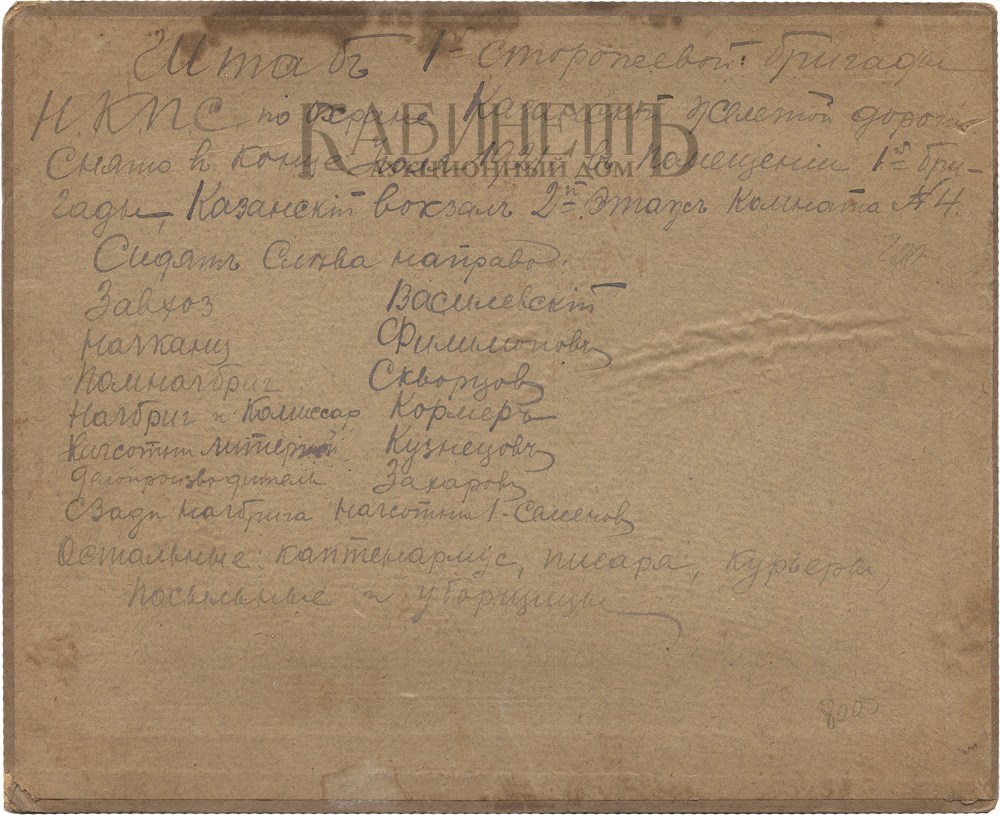 Штабъ 1й сторожевой бригады
Н.К.П.С. по охране Казанской железной дороги
КАБИНЕТЪ
АУКЦИОННЫЙ ДОМ
Снято в конце 1921 в помещении 1й бри-
гады, Казанскiй вокзалъ 2й этажъ комната № 4.
Сидятъ слева направо:
Завхоз Василевскiй
Начканц Филимоновъ
Помначбриг Скворцов
Начбриг и Комиссар Кормеръ
Начсотни литерной Кузнецовъ
Делопроизводитель Захаровъ
Сзади Начбрига Начсотни 1-Семенов
Остальные: каптенармус, писаря, курьеры,
посыльные и уборщицы
8000